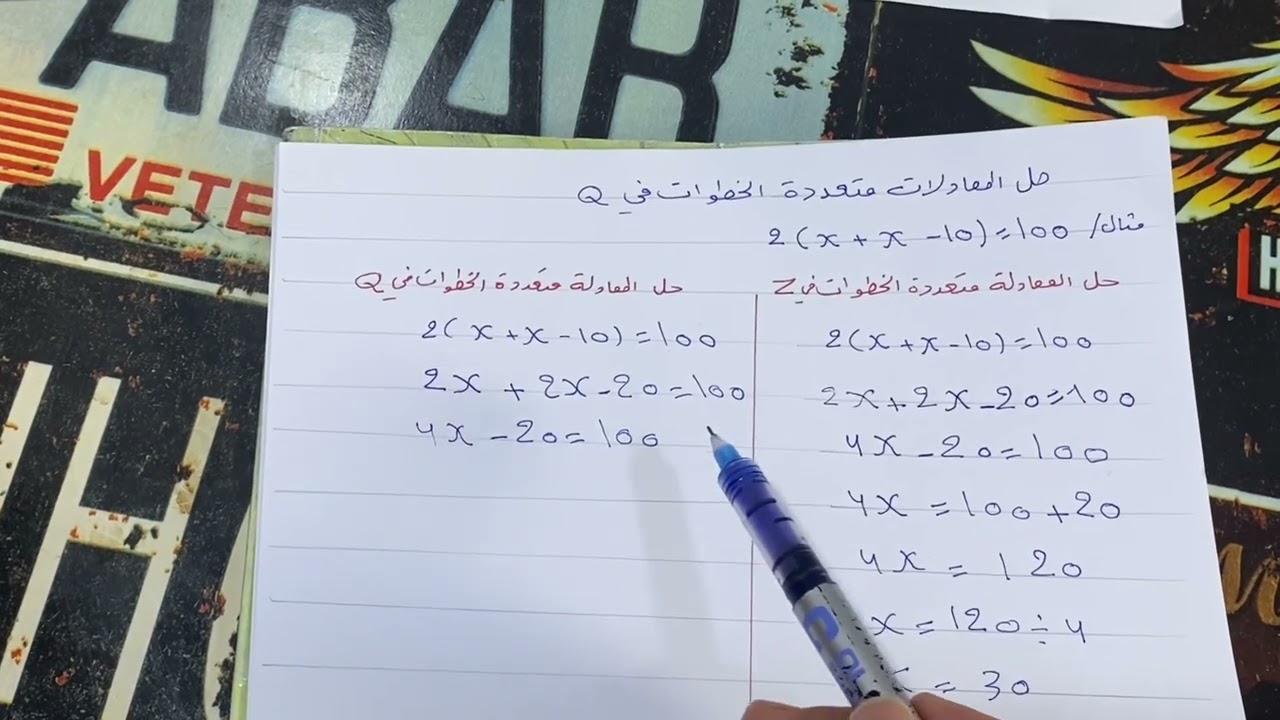 حل المعادلات متعددة الخطوات في Q
مثال/ 2(x + x - 10) = 100
حل المعادلة متعددة الخطوات في Z
2(x + x - 10) = 100
2x + 2x - 20 = 100
4x - 20 = 100
4x = 100 + 20
4x = 120
x = 120 ÷ 4
= 30
حل المعادلة متعددة الخطوات في Q
2(x + x - 10) = 100
2x + 2x - 20 = 100
4x - 20 = 100
VETE
H